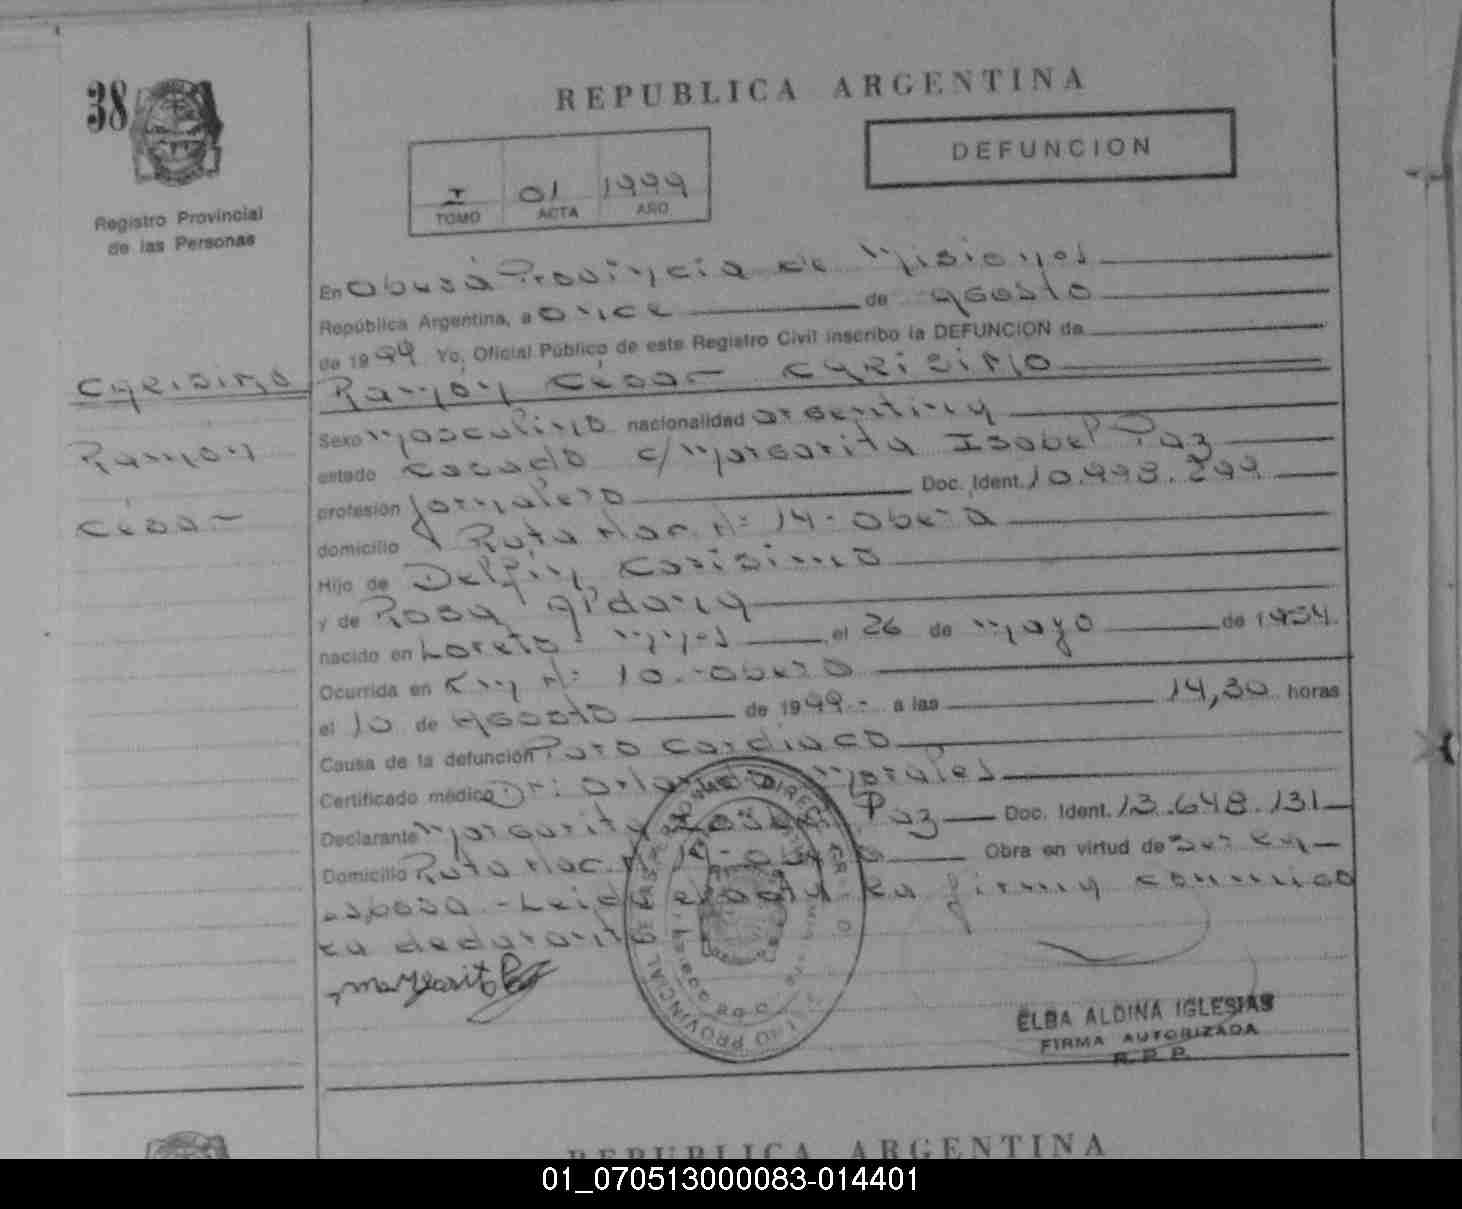 38
REPUBLICA ARGENTINA
DEFUNCION
I 01 1999
TOMO ACTA AÑO
Registro Provincial
de las Personas
En Oberá Provincia de Misiones
República Argentina, a once de agosto
de 1999 Yo, Oficial Público de este Registro Civil inscribo la DEFUNCION de
Carisimo
Ramón
César
Ramón César Carisimo
Sexo masculino nacionalidad argentina
estado casado c/ Margarita Isabel Paz
profesión jornalero Doc. Ident. 10.993.299
domicilio Ruta Nac. N: 14 - Oberá
Hijo de Delfin Carisimo
y de Rosa
nacido en Loreto Mnes el 26 de mayo de 1954.
Ocurrida en Km N: 10 - Oberá
el 10 de agosto de 1999 - a las 14,30 horas
Causa de la defunción Paro Cardiaco
Certificado médico Dr: Orlando Morales
Declarante Margarita Isabel Paz Doc. Ident. 13.648.131
Domicilio Ruta Nac. N 14 - Oberá Obra en virtud de ser su
esposa - Leida el acta la firma conmigo
la declarante
Margarita Paz
ELBA ALDINA IGLESIAS
FIRMA AUTORIZADA
R. P. P.
REPUBLICA ARGENTINA
01_070513000083-014401